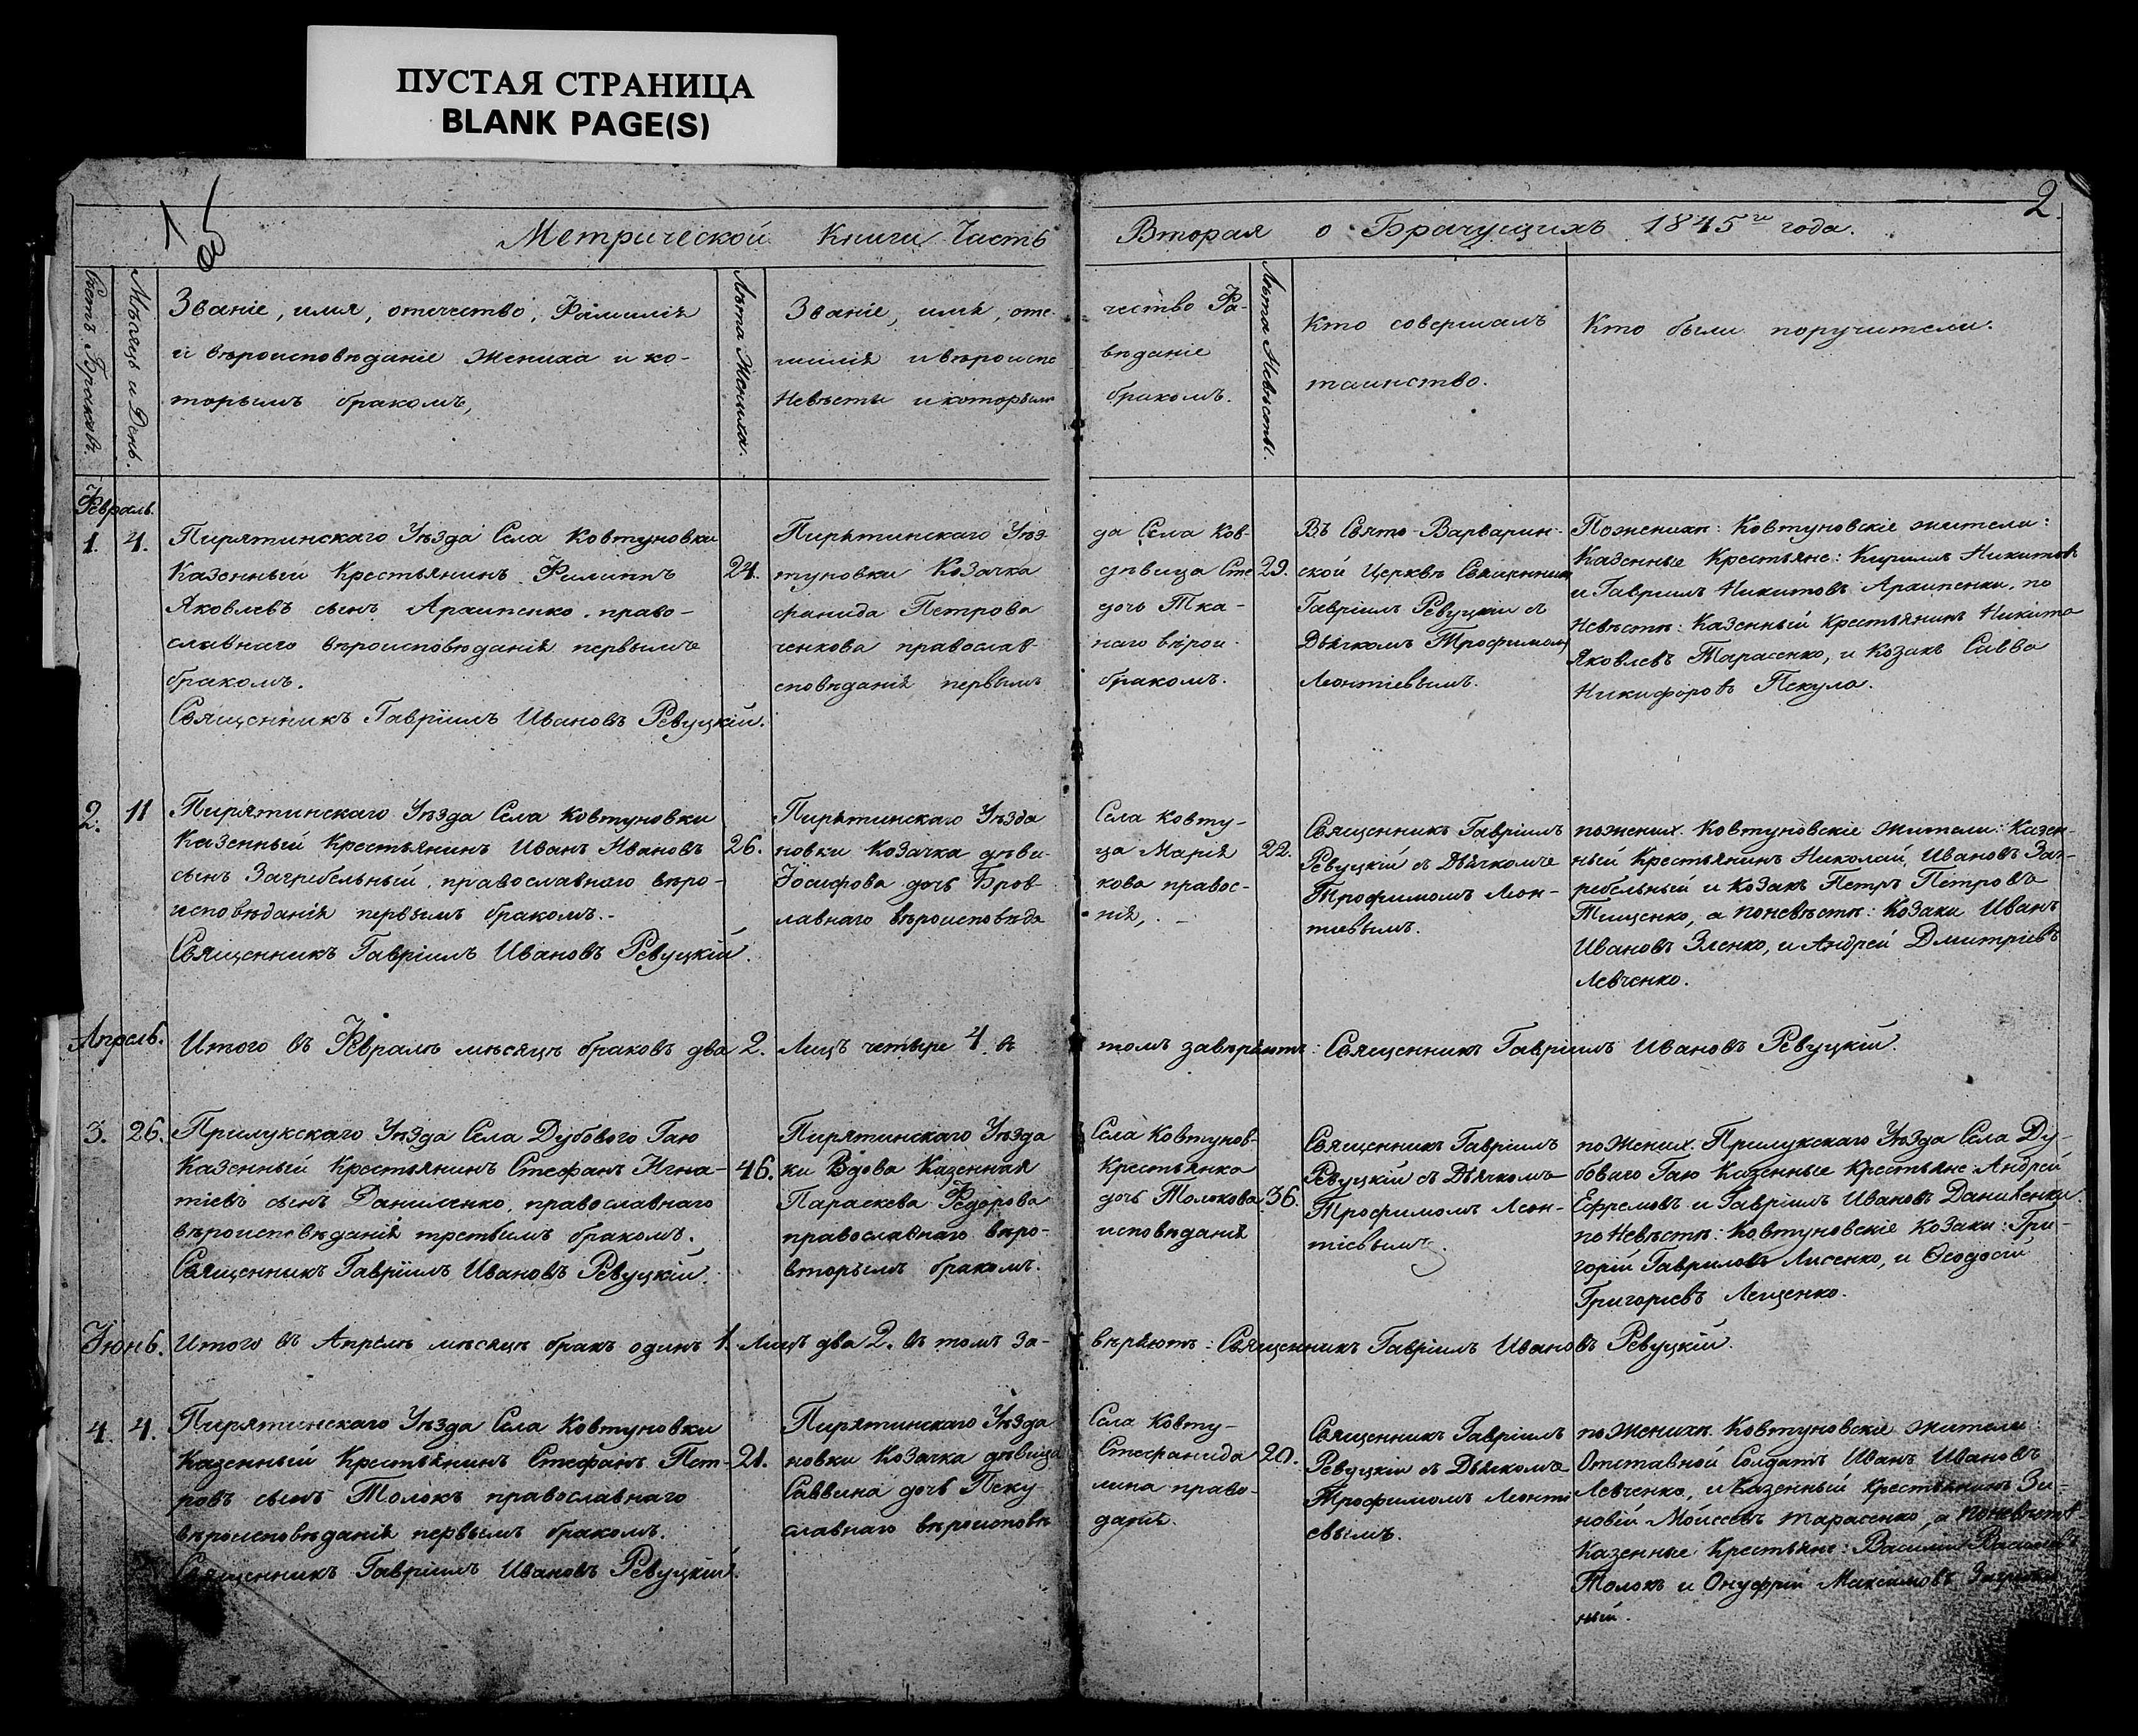 ПУСТАЯ СТРАНИЦА
BLANK PAGE(S)
2.
Метрической Книги Часть Вторая о Брачущихъ 1845го года.
Счетъ Браковъ.
Мѣсяцъ и День.
Званіе, имя, отечество, Фамилія
и вѣроисповѣданіе жениха и ко-
торымъ бракомъ,
Лѣта Жениха.
Званіе, имя, оте-чество Фа-
милія и вѣроиспо вѣданіе
Невѣсты и которымъ бракомъ.
Лѣта Невѣсты.
Кто совершалъ
таинство.
Кто были поручители.
Февраль.
1. 4.
Пирятинскаго Уѣзда Села Ковтуновки
Казенный Крестьянинъ Филиппъ
Яковлевъ сынъ Архипенко, право-
славнаго вѣроисповѣданія первымъ
бракомъ.
Священникъ Гавріилъ Ивановъ Ревуцкій.
24.
Пирятинскаго Уѣз- да Села Ков-
туновки Козачка дѣвица Сте
фанида Петрова дочь Тка-
ченкова православ- наго вѣрои-
сповѣданія первымъ бракомъ.
29.
Въ Свято-Варварин-
ской Церквѣ Священникъ
Гавріилъ Ревуцкій съ
Дьячкомъ Трофимомъ
Леонтіевымъ.
По женихѣ: Ковтуновскіе жители:
Казенные Крестьяне: Кирилъ Никитовъ
и Гавріилъ Никитовъ Архипенки, по
Невѣстѣ: Казенный Крестьянинъ Никита
Яковлевъ Тарасенко, и Козакъ Савва
Никифоровъ Пекула.
2. 11
Пирятинскаго Уѣзда Села Ковтуновки
Казенный Крестьянинъ Иванъ Ивановъ
сынъ Загребельный, православнаго вѣро-
исповѣданія первымъ бракомъ.-
Священникъ Гавріилъ Ивановъ Ревуцкій.
26.
Пирятинскаго Уѣзда Села Ковту-
новки Козачка дѣви- ца Марія
Іосифова дочь Бров- кова правос-
лавнаго вѣроисповѣда нія,.-
22.
Священникъ Гавріилъ
Ревуцкій съ Дьячкомъ
Трофимомъ Леон-
тіевымъ.
по жених. Ковтуновскіе жители: Казен-
ный Крестьянинъ Николай Ивановъ Заг-
ребельный и Козакъ Петръ Петровъ
Тищенко, а по невѣстѣ: Козаки Иванъ
Ивановъ Зленко, и Андрей Дмитріевъ
Левченко.
Апрель.
Итого въ Февралѣ мѣсяцѣ браковъ два 2. Лицъ четыре 4. въ томъ завѣряютъ: Священникъ Гавріилъ Ивановъ Ревуцкій.
3. 26.
Прилукскаго Уѣзда Села Дубового Гаю
Казенный Крестьянинъ Стефанъ Игна-
тіевъ сынъ Даниленко, православнаго
вѣроисповѣданія третьимъ бракомъ.
Священникъ Гавріилъ Ивановъ Ревуцкій.
46.
Пирятинскаго Уѣзда Села Ковтунов-
ки Вдова Казенная Крестьянка
Параскева Федорова дочь Толокова
православнаго вѣро- исповѣданія
вторымъ бракомъ.
36.
Священникъ Гавріилъ
Ревуцкій съ Дьячкомъ
Трофимомъ Леон-
тіевымъ.
по Жених. Прилукскаго Уѣзда Села Ду-
боваго Гаю Казенные Крестьяне Андрей
Ефремовъ и Гавріилъ Ивановъ Даниленки.
по Невѣстѣ: Ковтуновскіе Козаки: Гри-
горій Гавриловъ Лисенко, и Ѳеодосій
Григорьевъ Лещенко.
Іюнь.
Итого въ Апрелѣ мѣсяцѣ бракъ одинъ 1. Лицъ два 2. въ томъ за- вѣряютъ: Священникъ Гавріилъ Ивановъ Ревуцкій.
4. 4.
Пирятинскаго Уѣзда Села Ковтуновки
Казенный Крестьянинъ Стефанъ Пет-
ровъ сынъ Толокъ православнаго
вѣроисповѣданія первымъ бракомъ.
Священникъ Гавріилъ Ивановъ Ревуцкій.
21.
Пирятинскаго Уѣзда Села Ковту-
новки Козачка дѣвица Стефанида
Саввина дочь Пеку- лина право-
славнаго вѣроисповѣ данія.
20.
Священникъ Гавріилъ
Ревуцкій съ Дьячкомъ
Трофимомъ Леонті
евымъ.
по Женихѣ. Ковтуновскіе жители:
Отставной Солдатъ Иванъ Ивановъ
Левченко, и Казенный Крестьянинъ Зи-
новій Мойсеевъ Тарасенко, а по невѣстѣ
Казенные Крестьяне: Василій Васильевъ
Толокъ и Онуфрій Максимовъ Загребель
ный.